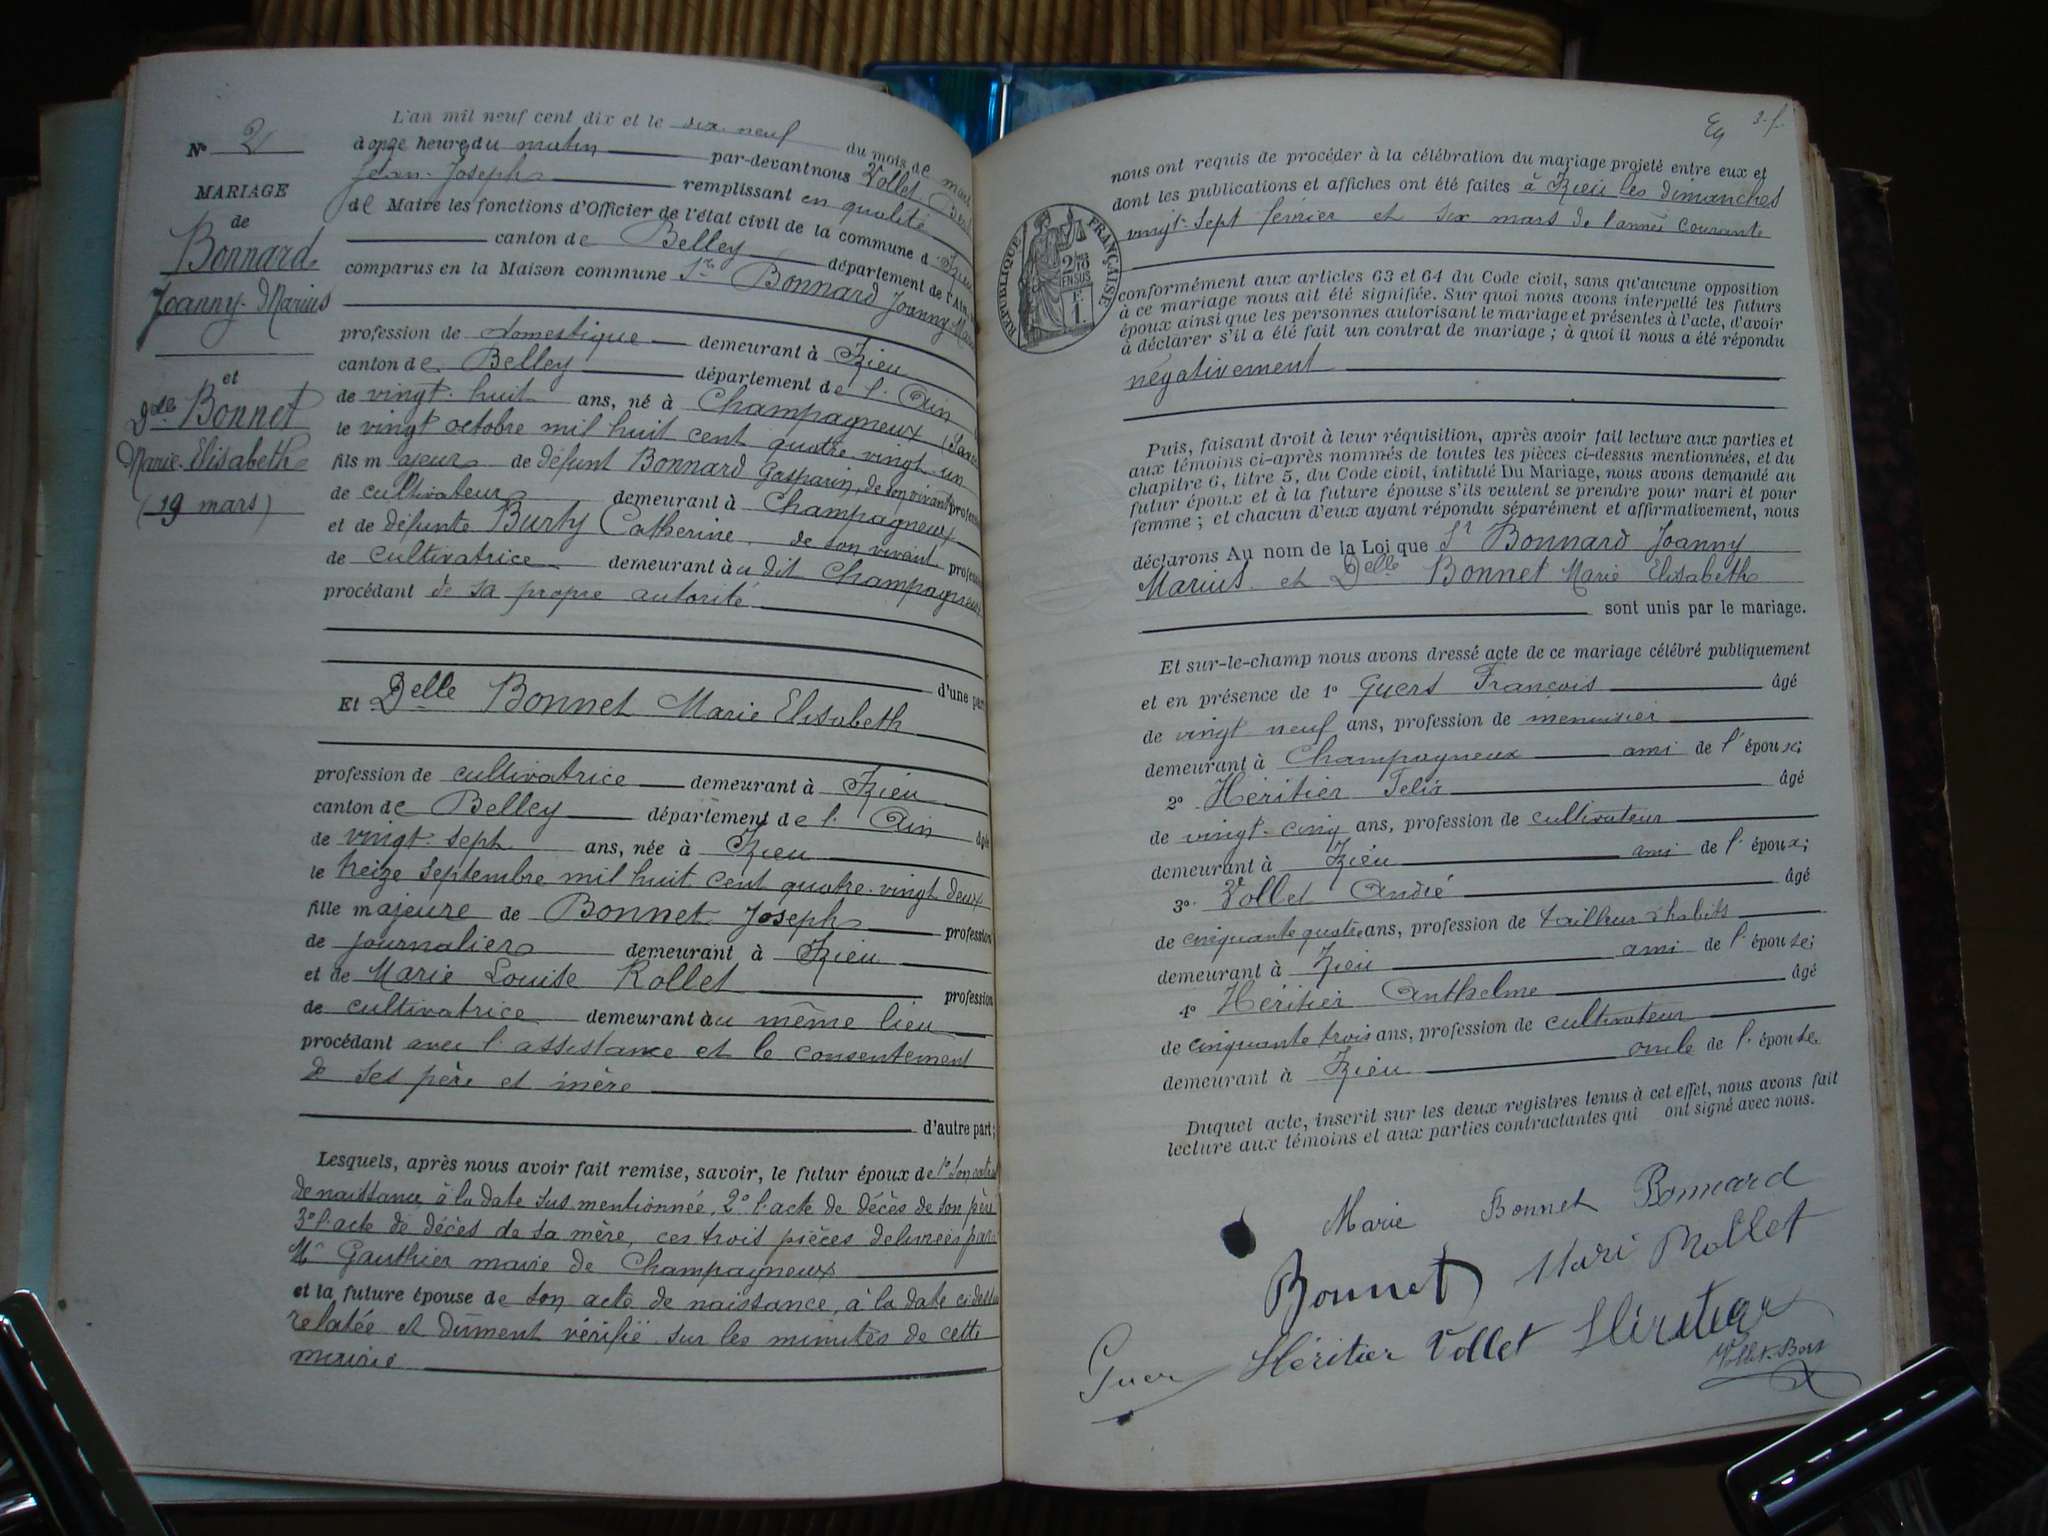 L'an mil neuf cent dix et le dix-neuf du mois de mars
N° 2
à onze heure du matin par-devant nous Vollet Bort
MARIAGE
Jean-Joseph remplissant en qualité
de
de Maire les fonctions d'Officier de l'état civil de la commune d'Izieu
Bonnard
canton de Belley département de l'Ain
Joanny-Marius
comparus en la Maison commune Sr Bonnard Joanny Marius
et
profession de domestique demeurant à Izieu
Delle Bonnet
canton de Belley département de l'Ain
Marie-Elisabeth
de vingt-huit ans, né à Champagneux
(19 mars)
le vingt octobre mil huit cent quatre-vingt-un
fils majeur de défunt Bonnard Gasparin, de son vivant profession
de cultivateur demeurant à Champagneux
et de défunte Burty Catherine de son vivant profession
de cultivatrice demeurant au dit Champagneux
procédant de sa propre autorité
d'une part
Et Delle Bonnet Marie Elisabeth
profession de cultivatrice demeurant à Izieu
canton de Belley département de l'Ain âgée
de vingt-sept ans, née à Izieu
le treize septembre mil huit cent quatre-vingt deux
fille majeure de Bonnet Joseph profession
de journalier demeurant à Izieu
et de Marie Louise Rollet profession
de cultivatrice demeurant au même lieu
procédant avec l'assistance et le consentement
de ses père et mère
d'autre part;
Lesquels, après nous avoir fait remise, savoir, le futur époux de 1° son acte
de naissance à la date sus mentionnée, 2° l'acte de décès de son père
3° l'acte de décès de sa mère, ces trois pièces délivrées par
Mr Gauthier maire de Champagneux
et la future épouse de son acte de naissance, à la date ci-dessus
relatée et dûment vérifié sur les minutes de cette
mairie
3. f.
nous ont requis de procéder à la célébration du mariage projeté entre eux et
dont les publications et affiches ont été faites à Izieu les dimanches
vingt-sept février et six mars de l'année courante
REPUBLIQUE FRANÇAISE
2/10
EN SUS
1 F.
conformément aux articles 63 et 64 du Code civil, sans qu'aucune opposition
à ce mariage nous ait été signifiée. Sur quoi nous avons interpellé les futurs
époux ainsi que les personnes autorisant le mariage et présentes à l'acte, d'avoir
à déclarer s'il a été fait un contrat de mariage; à quoi il nous a été répondu
négativement
Puis, faisant droit à leur réquisition, après avoir fait lecture aux parties et
aux témoins ci-après nommés de toutes les pièces ci-dessus mentionnées, et du
chapitre 6, titre 5, du Code civil, intitulé Du Mariage, nous avons demandé au
futur époux et à la future épouse s'ils veulent se prendre pour mari et pour
femme; et chacun d'eux ayant répondu séparément et affirmativement, nous
déclarons Au nom de la Loi que Sr Bonnard Joanny
Marius et Delle Bonnet Marie Elisabeth
sont unis par le mariage.
Et sur-le-champ nous avons dressé acte de ce mariage célébré publiquement
et en présence de 1° Guers François âgé
de vingt neuf ans, profession de menuisier
demeurant à Champagneux ami de l'époux;
2° Héritier Félix âgé
de vingt-cinq ans, profession de cultivateur
demeurant à Izieu ami de l'époux;
3° Vollet André âgé
de cinquante quatre ans, profession de tailleur d'habits
demeurant à Izieu ami de l'épouse;
4° Héritier Anthelme âgé
de cinquante trois ans, profession de cultivateur
demeurant à Izieu oncle de l'épouse.
Duquel acte, inscrit sur les deux registres tenus à cet effet, nous avons fait
lecture aux témoins et aux parties contractantes qui ont signé avec nous.
Marie Bonnet Bonnard
Bonnet Mari Rollet
Guers Héritier Vollet Héritier
Vollet-Bort